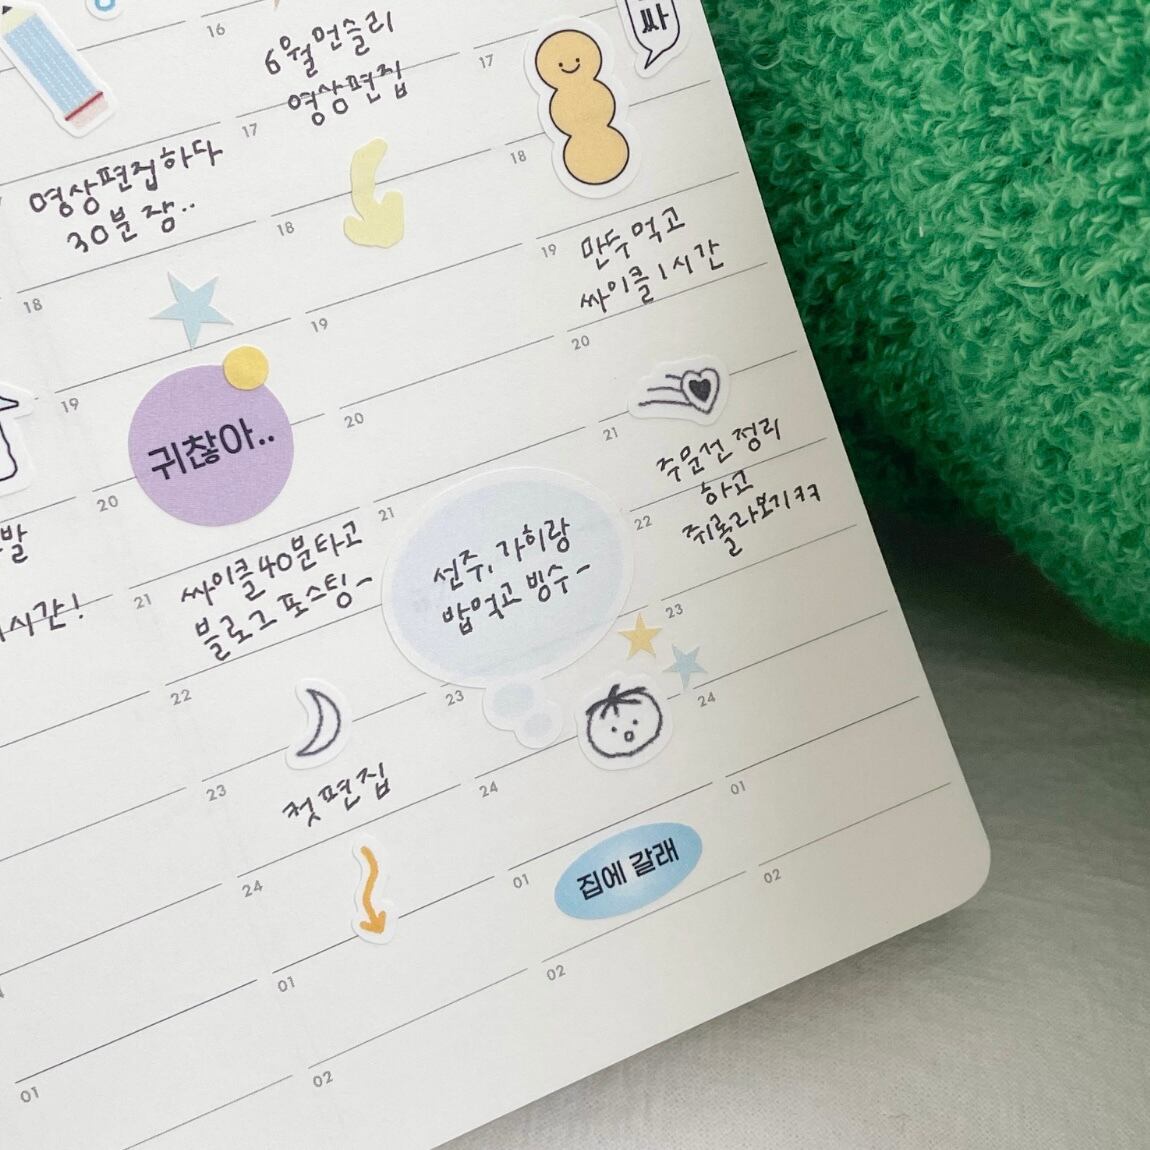 16
6월 먼슬리
영상편집
17
싸
17
영상편집하다
30분 잠..
18
18
19
만두 먹고
싸이클 1시간
18
19
20
19
귀찮아..
20
21
주문건 정리
하고
쥐롤라보기ㅋㅋ
20
발
싸이클 40분 타고
블로그 포스팅~
21
선주, 가희랑
밥먹고 빙수~
22
시간!
21
23
22
23
24
23
컷편집
24
01
24
01
집에 갈래
02
01
02
01
02